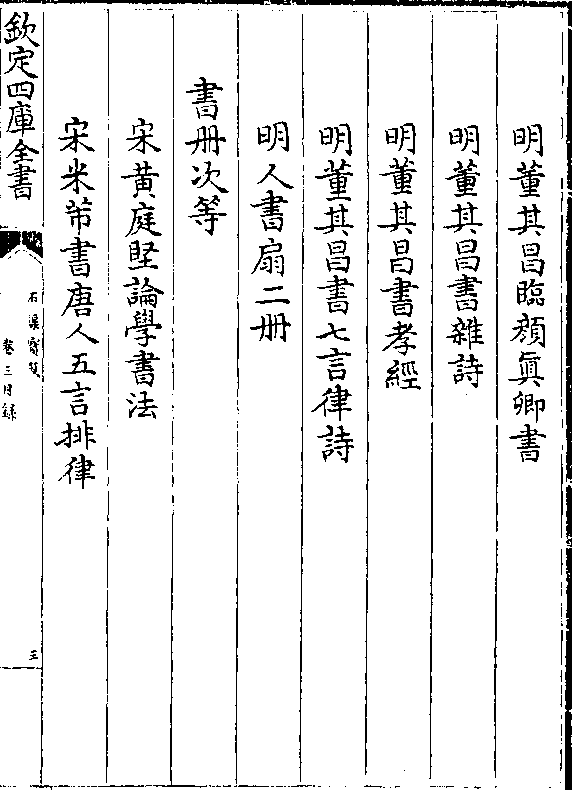 明董其昌臨顏真卿書
明董其昌書雜詩
明董其昌書孝經
明董其昌書七言律詩
明人書扇二册
書册次等
宋黄庭堅論學書法
宋米芾書唐人五言排律
欽定四庫全書
石渠寶笈
卷三目録
三